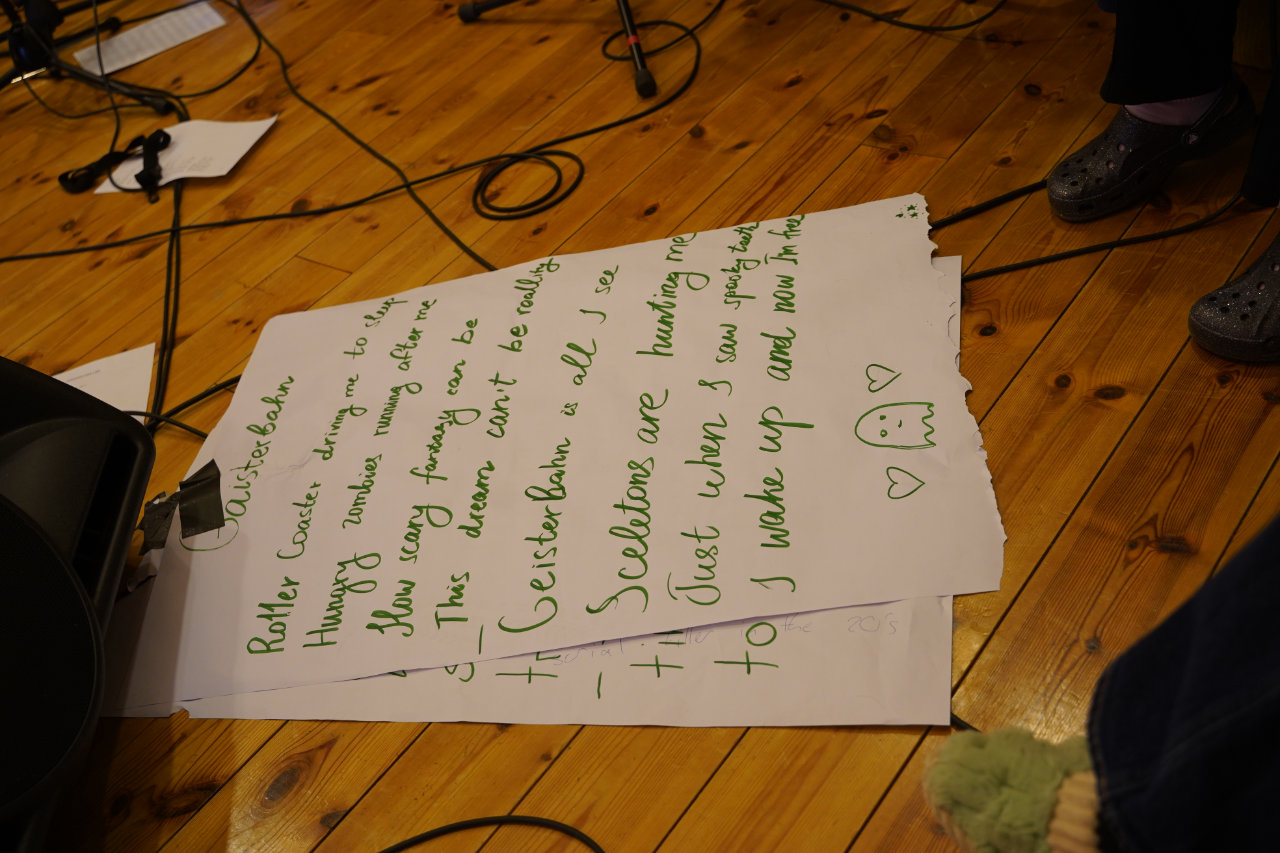 Gaisterbahn
Roller Coaster driving me to sleep
Hungry zombies running after me
How scary fantasy can be
This dream can't be reality
Geisterbahn is all I see
Sceletons are hunting me
Just when I saw spooky teeth
I wake up and now I'm free
to
the 20is